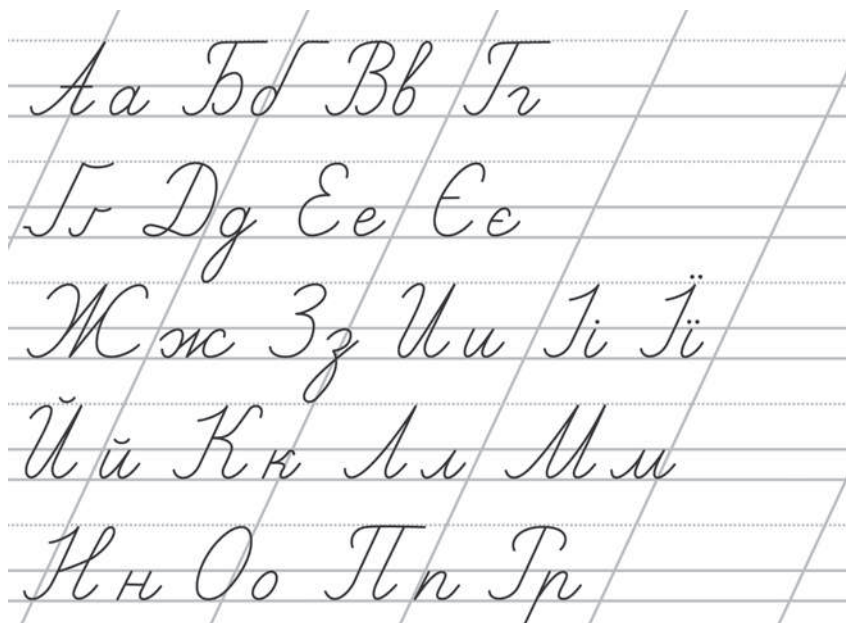 Аа Бб Вв Гг
Ґґ Дд Ее Єє
Жж Зз Ии Іі Її
Йй Кк Лл Мм
Нн Оо Пп Рр